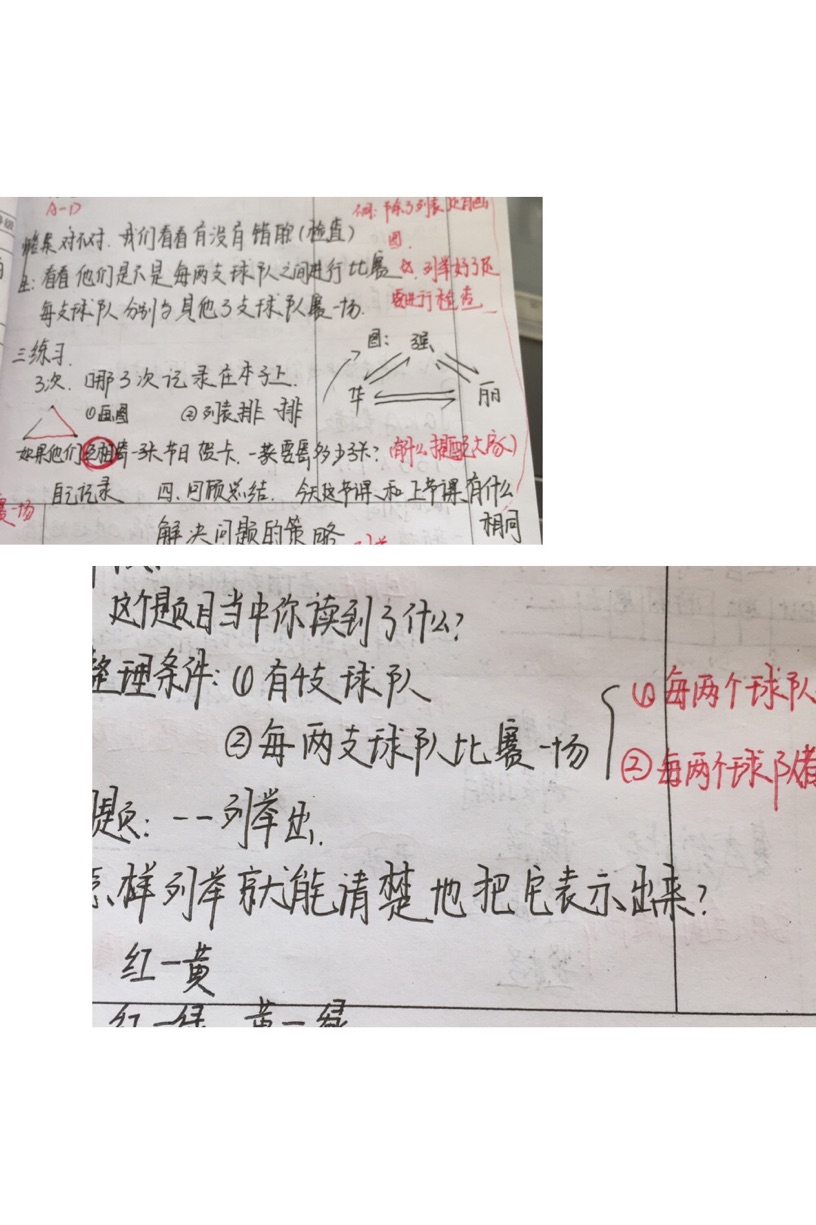 A-D
结果对不对.我们看看有没有错的(检查)
生:看看他们是不是每两支球队之间进行比赛
每支球队分别与其他3支球队赛一场.
图.
列举好了还
要进行检查
三练习.
3次.哪3次记录在本子上.
①画图 ②列表排一排
图: 强 华 丽
如果他们互相寄一张节日贺卡.一共要寄多少张?
自己记录 四.回顾总结. 今天这节课和上节课有什么
相同
赛一场
解决问题的策略
这个题目当中你读到了什么?
整理条件:①有4支球队
②每两支球队比赛一场
①每两个球队
②每两个球队
题:一一列举出.
怎样列举就能清楚地把它表示出来?
红一黄
红一绿 黄一绿